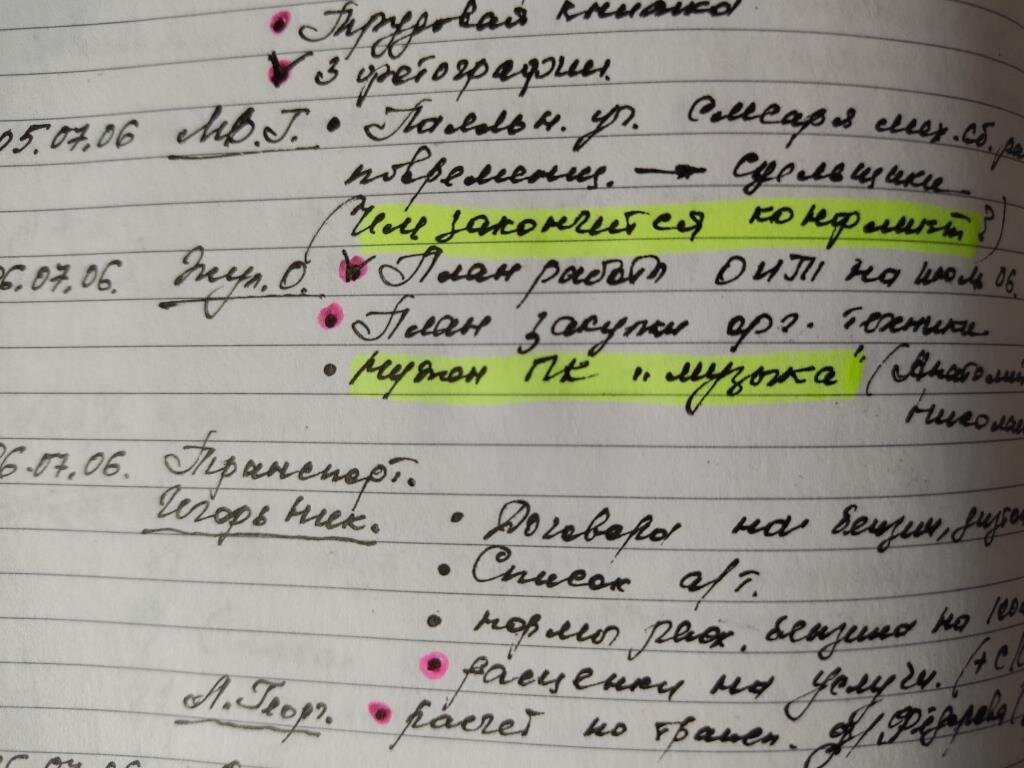 • Трудовая книжка
3 фотографии.
05.07.06 М.В.Г. • уч. слесаря мех. сб. ра
повременщ. → сдельщики
(Чем закончится конфликт?)
6.07.06. Жул. О. План работ ОИТ на июль 06.
• План закупки орг. техники
• Нужен ПК "музыка" (Анатолий
Николай
6.07.06. Транспорт.
Игорь Ник. • Договора на бензин, дизтоп
• Список а/т.
• нормы расх. бензина на 100
• расценки на услуги. (+с
Л. Георг. • Расчет по трансп. д/Фёдорова